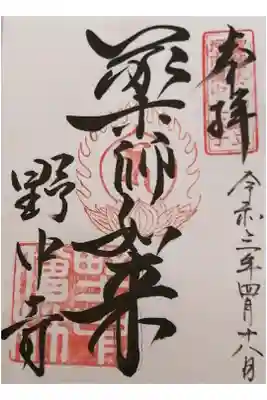 奉拝
令和三年四月十八日
薬師如来
野中寺